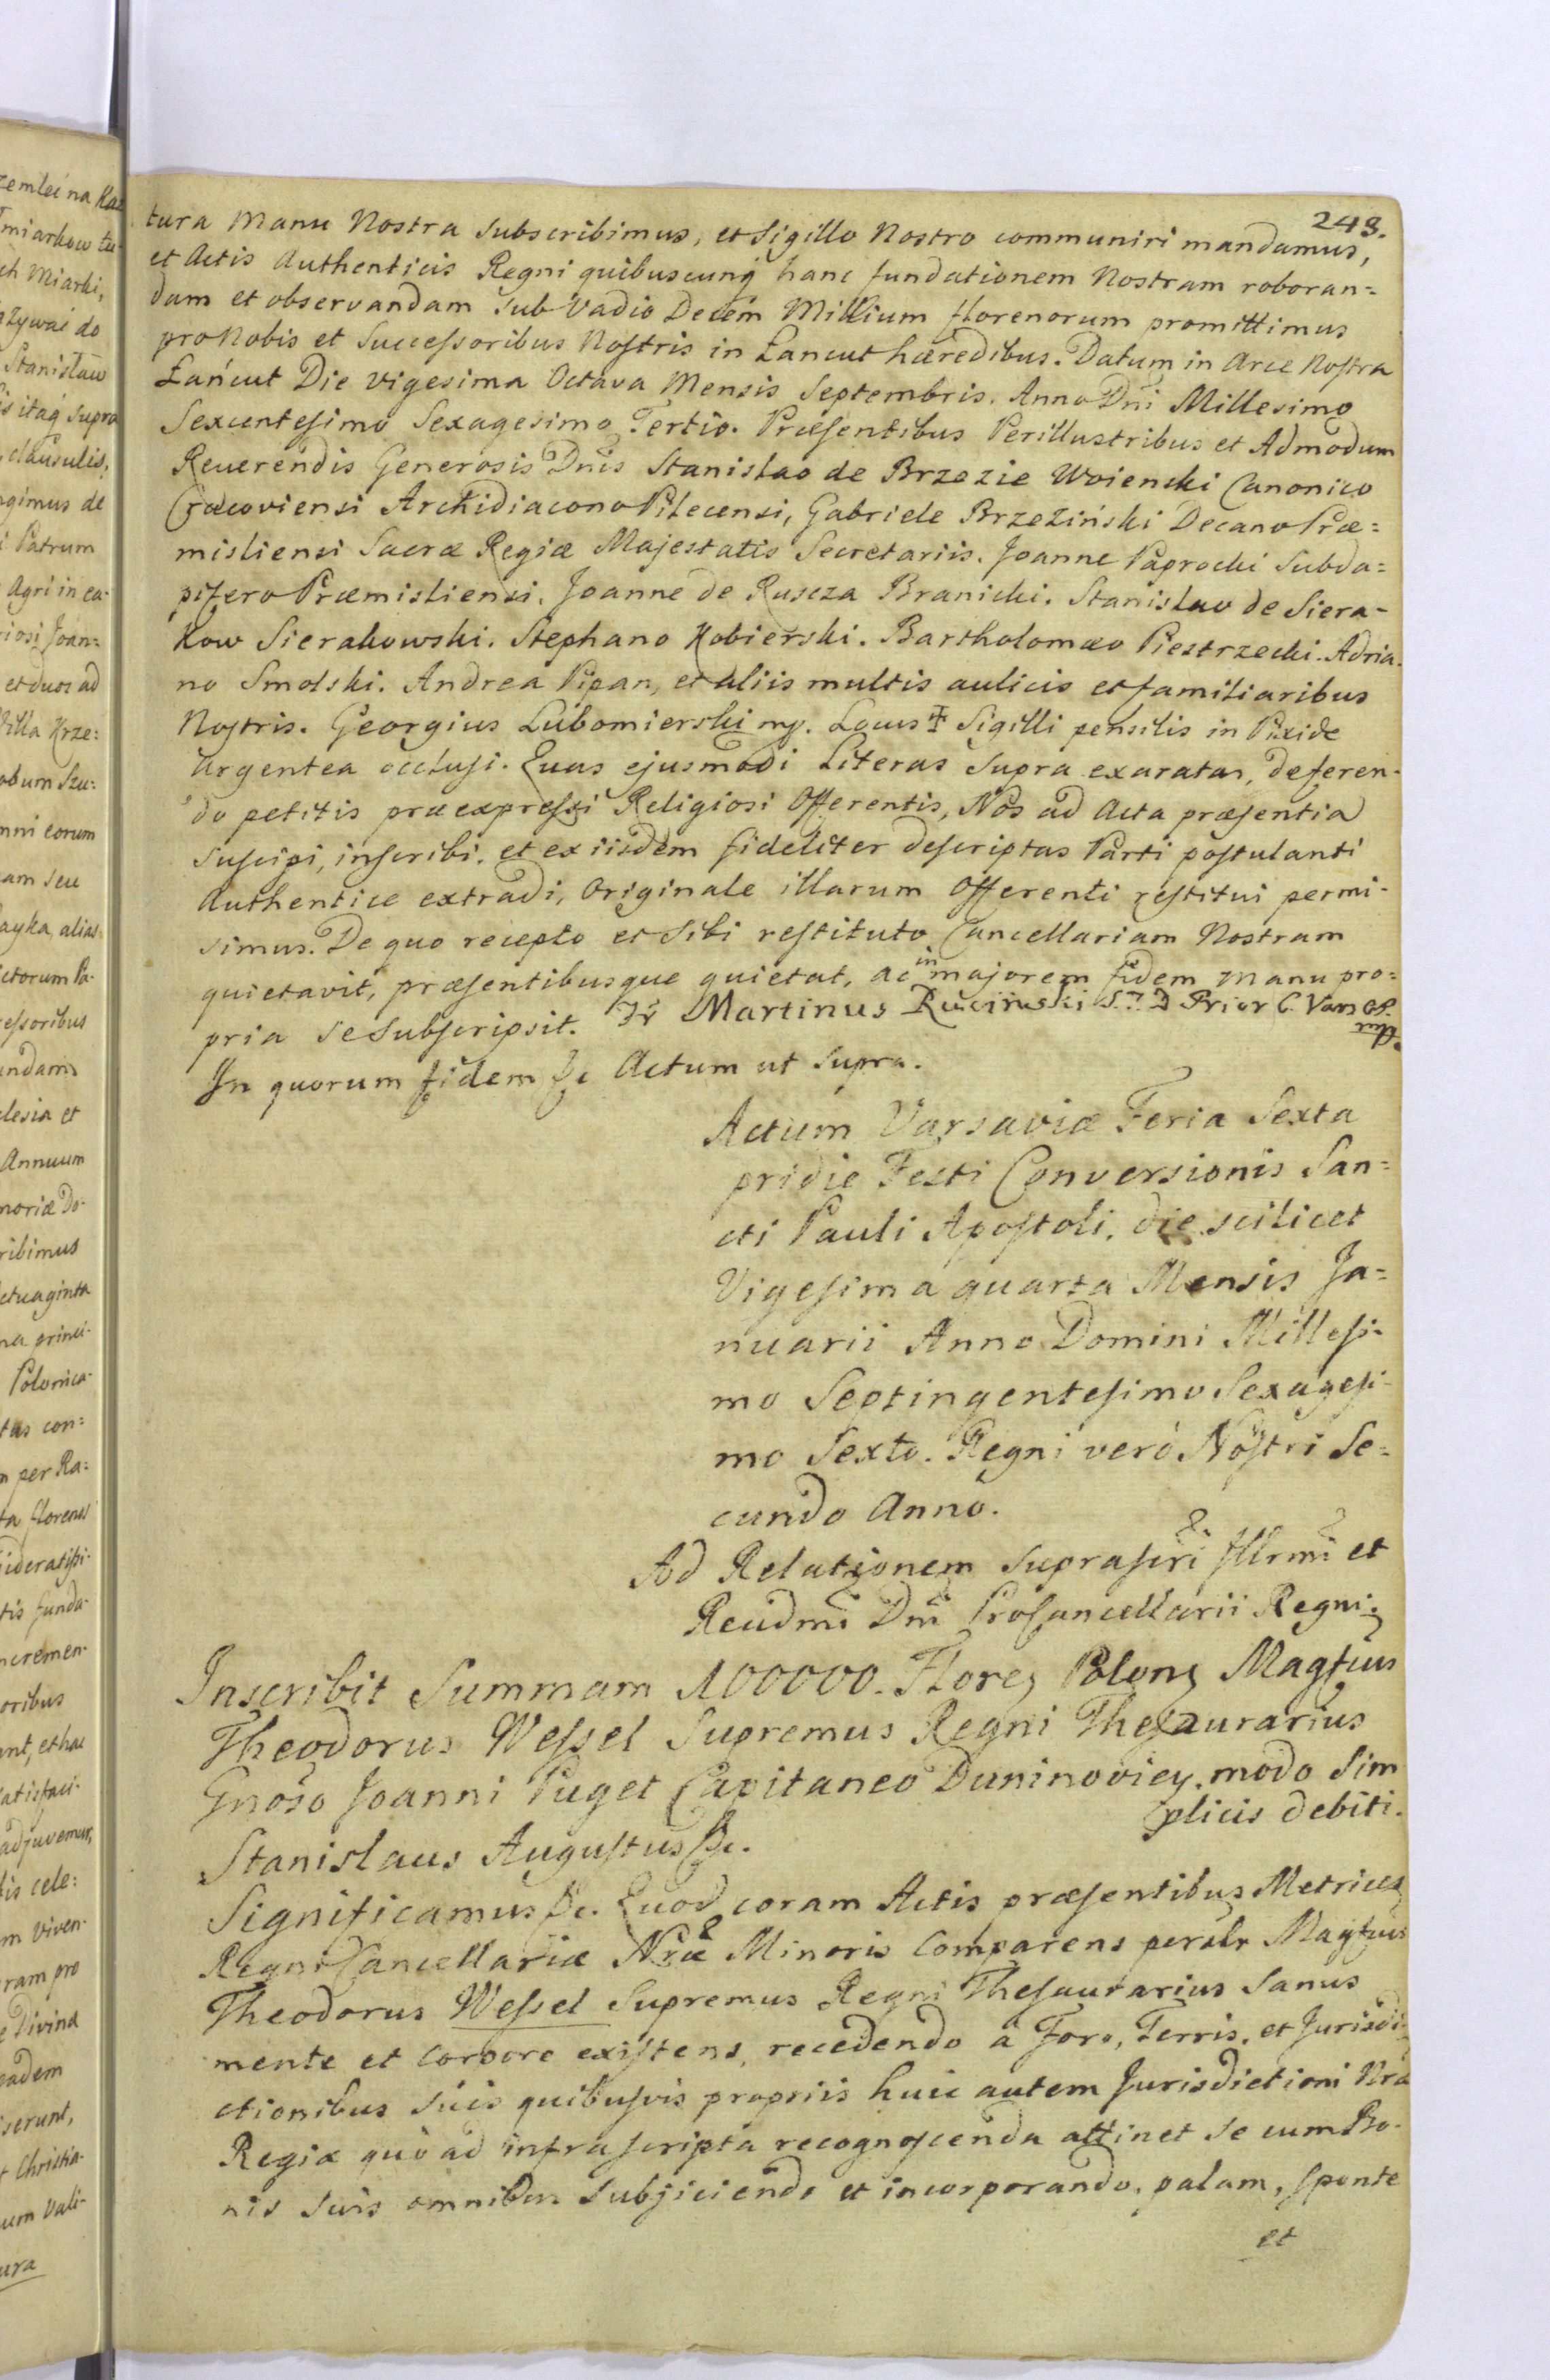 248.
tura Manu Nostra subscribimus, et Sigillo Nostro communiri mandamus,
et Actis Authenticis Regni quibuscunq hanc fundationem Nostram roboran=
dam et observandam sub Vadio Decem Millium florenorum promittimus
pro Nobis et Successoribus Nostris in Łancut hæredibus. Datum in Arce Nostra
Łańcut Die Vigesima Octava Mensis Septembris. Anno Dni Millesimo
Sexcentesimo Sexagesimo Tertio. Præsentibus Perillustribus et Admodum
Reuerendis Generosis Dnis Stanislao de Brzezie Woienski Canonico
Cracoviensi Archidiacono Pilecensi, Gabriele Brzeziński Decano Præ=
misliensi Sacræ Regiæ Majestatis Secretariis. Joanne Paprocki Subda=
pifero Præmisliensi. Joanne de Ruscza Branicki. Stanislao de Siera-
kow Sierakowski. Stephano Kobierski. Bartholomæo Piestrzecki. Adria-
no Smolski. Andrea Pipan, et aliis multis aulicis et familiaribus
Nostris. Georgius Lubomierski mp. Locus ‡ Sigilli pensilis in Pixide
argentea occlusi. Quas ejusmodi Literas supra exaratas, deferen-
do petitis præexpressi Religiosi Offerentis, Nos ad Acta præsentia
suscipi, inscribi, et ex iisdem fideliter descriptas Parti postulanti
Authentice extradi, Originale illarum Offerenti restitui permi-
simus. De quo recepto et sibi restituto Cancellariam Nostram
quietavit, præsentibusque quietat, ac in majorem fidem Manu pro=
pria se subscripsit. Fr Martinus Ruciński S. D Prior C. Vars OP.
mp.
In quorum fidem &c Actum ut supra.
Actum Varsaviæ Feria Sexta
pridie Festi Conversionis San=
cti Pauli Apostoli, die scilicet
Vigesima quarta Mensis Ja=
nuarii Anno Domini Millesi=
mo Septingentesimo Sexagesi-
mo Sexto. Regni verò Nostri Se=
cundo Anno.
Ad Relationem suprascri Illrmi et
Reudmi Dni Procancellarii Regni.
Inscribit Summam 100000. Flore Polon Magfcus
Theodorus Wessel Supremus Regni Thesaurarius
Gnoso Joanni Puget Capitaneo Duninoviey. modo Sim
plicis debiti.
Stanislaus Augustus &c.
Significamus &c. Quod coram Actis præsentibus Metrices
Regni Cancellariæ Nræ Minoris Comparens persalr Magfcus
Theodorus Wessel Supremus Regni Thesaurarius Sanus
mente et corpore existens, recedendo a Foro, Terris, et Jurisdi-
ctionibus suis quibusvis propriis huic autem Jurisdictioni Nræ
Regiæ quò ad infrascripta recognoscenda attinet se cum Bo-
nis suis omnibus subjiciendo et incorporando, palam, sponte
et